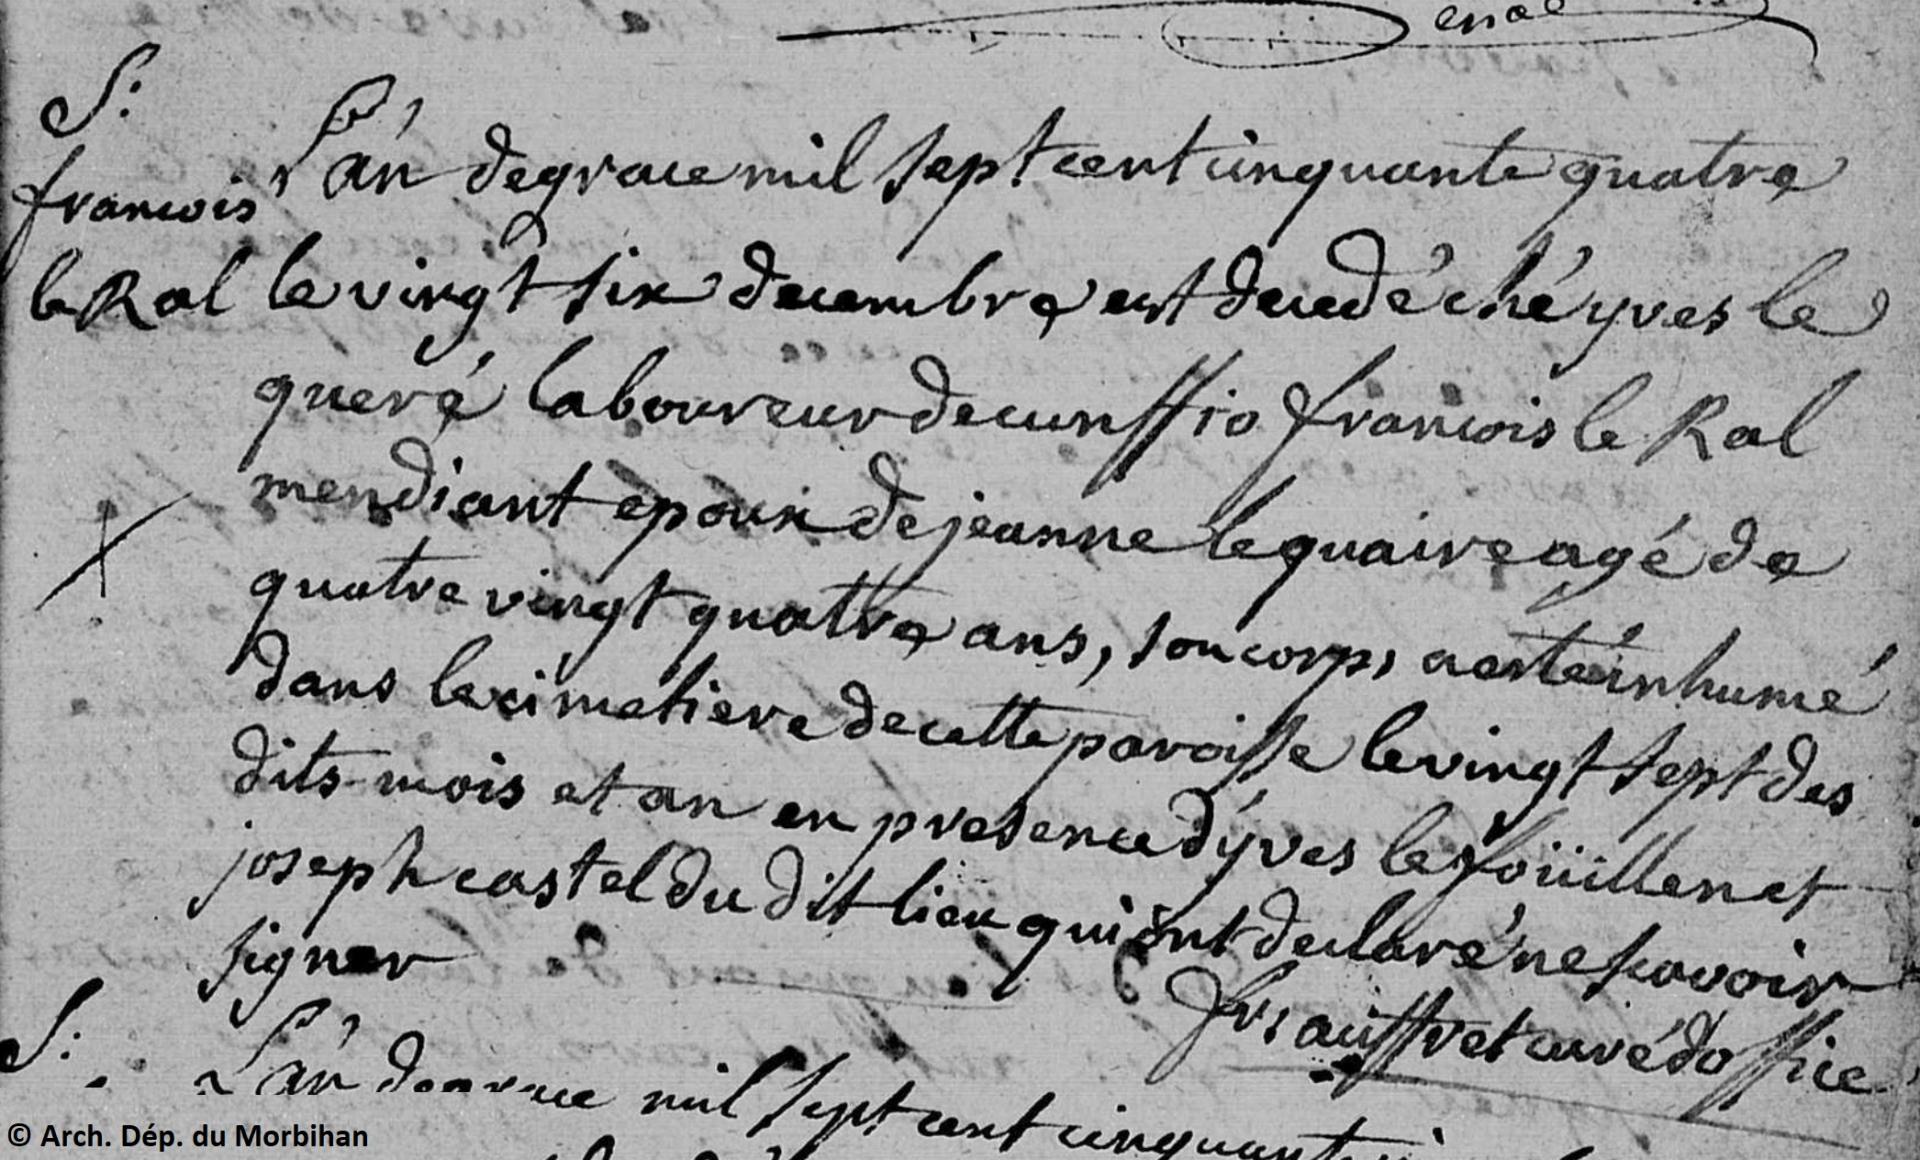 S:
françois
le Ral
L'an de grace mil sept cent cinquante quatre
le vingt six decembre est decedé ché yves le
queré laboureur de cunffio françois le Ral
mendiant epoux de jeanne le quaire agé de
quatre vingt quatre ans, son corps a esté inhumé
dans le cimetiere de cette paroisse le vingt sept des
dits mois et an en presence d'yves le foüillen et
joseph castel du dit lieu qui ont declaré ne scavoir
signer
frs auffret curé d'office
S:
L'an de grace mil sept cent cinquante
© Arch. Dép. du Morbihan